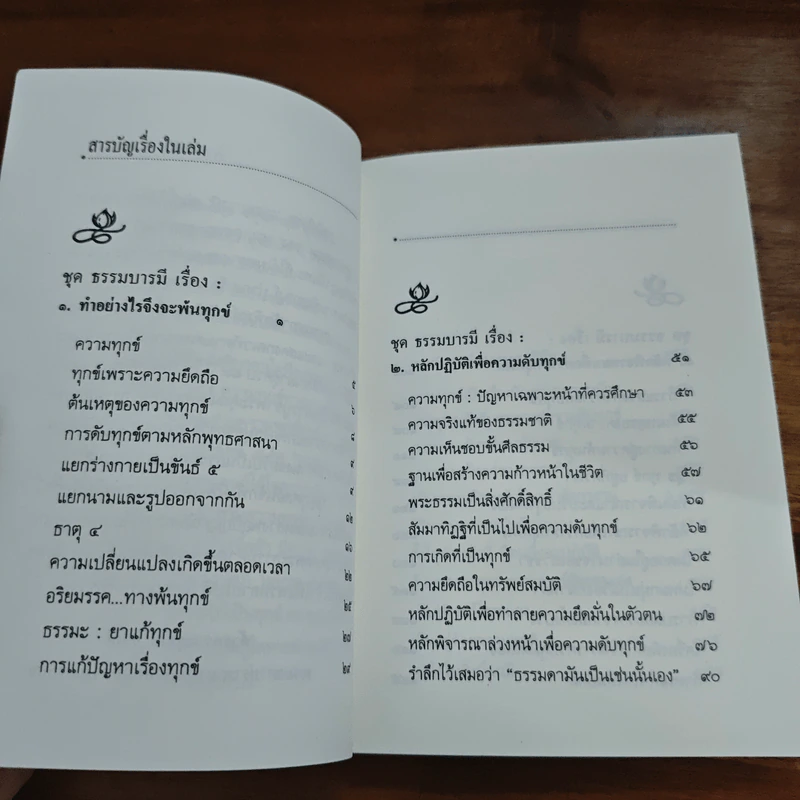 สารบัญเรื่องในเล่ม
ชุด ธรรมบารมี เรื่อง :
๑. ทำอย่างไรจึงจะพ้นทุกข์ ๑
ความทุกข์
ทุกข์เพราะความยึดถือ ๕
ต้นเหตุของความทุกข์ ๖
การดับทุกข์ตามหลักพุทธศาสนา ๘
แยกร่างกายเป็นขันธ์ ๕ ๙
แยกนามและรูปออกจากกัน ๙
ธาตุ ๔ ๑๒
ความเปลี่ยนแปลงเกิดขึ้นตลอดเวลา ๑๖
อริยมรรค...ทางพ้นทุกข์ ๒๒
ธรรมะ : ยาแก้ทุกข์ ๒๕
การแก้ปัญหาเรื่องทุกข์ ๒๗
๒๙
ชุด ธรรมบารมี เรื่อง :
๒. หลักปฏิบัติเพื่อความดับทุกข์ ๕๑
ความทุกข์ : ปัญหาเฉพาะหน้าที่ควรศึกษา ๕๓
ความจริงแท้ของธรรมชาติ ๕๕
ความเห็นชอบขั้นศีลธรรม ๕๖
ฐานเพื่อสร้างความก้าวหน้าในชีวิต ๕๗
พระธรรมเป็นสิ่งศักดิ์สิทธิ์ ๖๑
สัมมาทิฏฐิที่เป็นไปเพื่อความดับทุกข์ ๖๒
การเกิดที่เป็นทุกข์ ๖๕
ความยึดถือในทรัพย์สมบัติ ๖๗
หลักปฏิบัติเพื่อทำลายความยึดมั่นในตัวตน ๗๒
หลักพิจารณาล่วงหน้าเพื่อความดับทุกข์ ๗๖
รำลึกไว้เสมอว่า “ธรรมดามันเป็นเช่นนั้นเอง” ๙๐